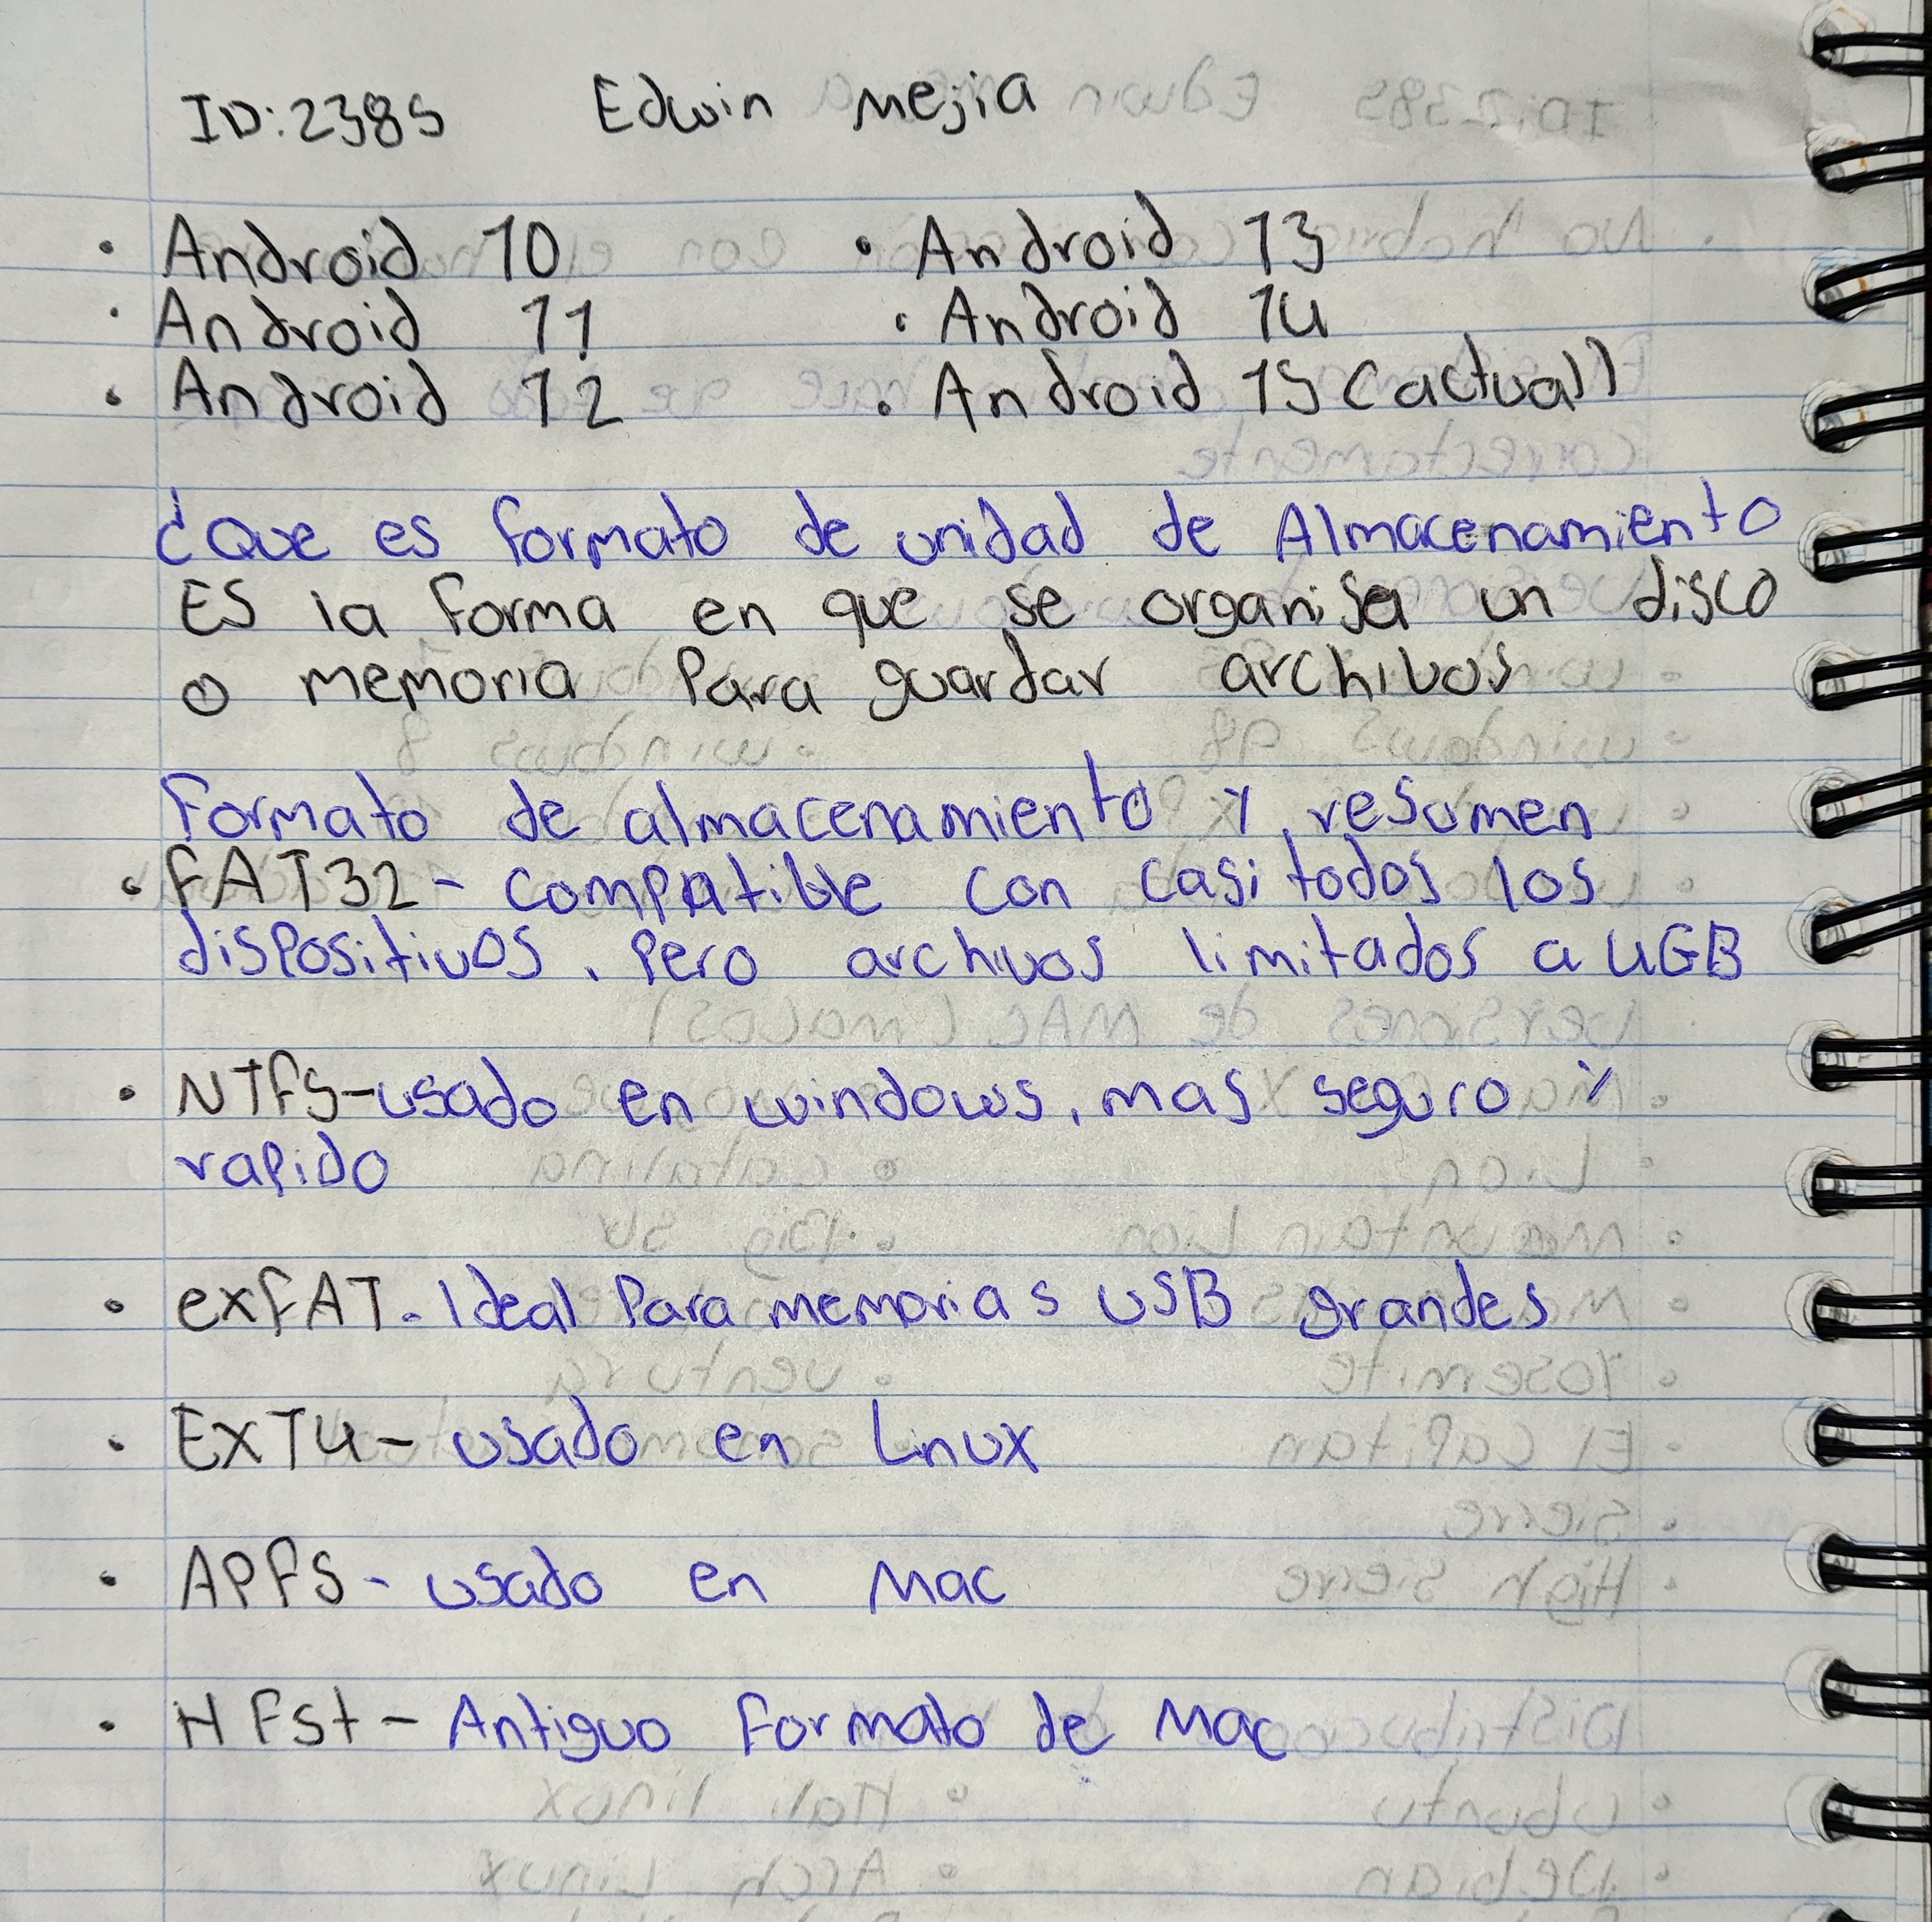 ID:2385 Edwin Mejia
• Android 10 • Android 13
• Android 11 • Android 14
• Android 12 • Android 15 (actual)
¿Que es formato de unidad de Almacenamiento
ES la forma en que se organisa un disco
o memoria Para guardar archivos
Formato de almacenamiento y resumen
• FAT32 - compatible con casi todos los
dispositivos, Pero archivos limitados a 4GB
• NTFS - usado en windows, mas seguro y
rapido
• exFAT - Ideal Para memorias USB grandes
• EXT4 - usado en Linux
• APFS - usado en Mac
• HFS+ - Antiguo formato de Mac